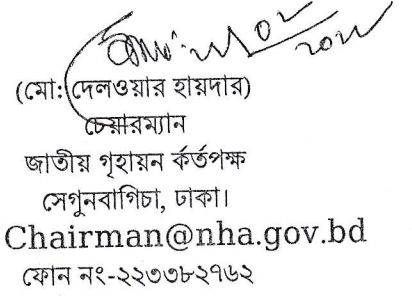 (মো: দেলওয়ার হায়দার)
চেয়ারম্যান
জাতীয় গৃহায়ন র্কর্তপক্ষ
সেগুনবাগিচা, ঢাকা।
Chairman@nha.gov.bd
ফোন নং-২২৩৩৮২৭৬২